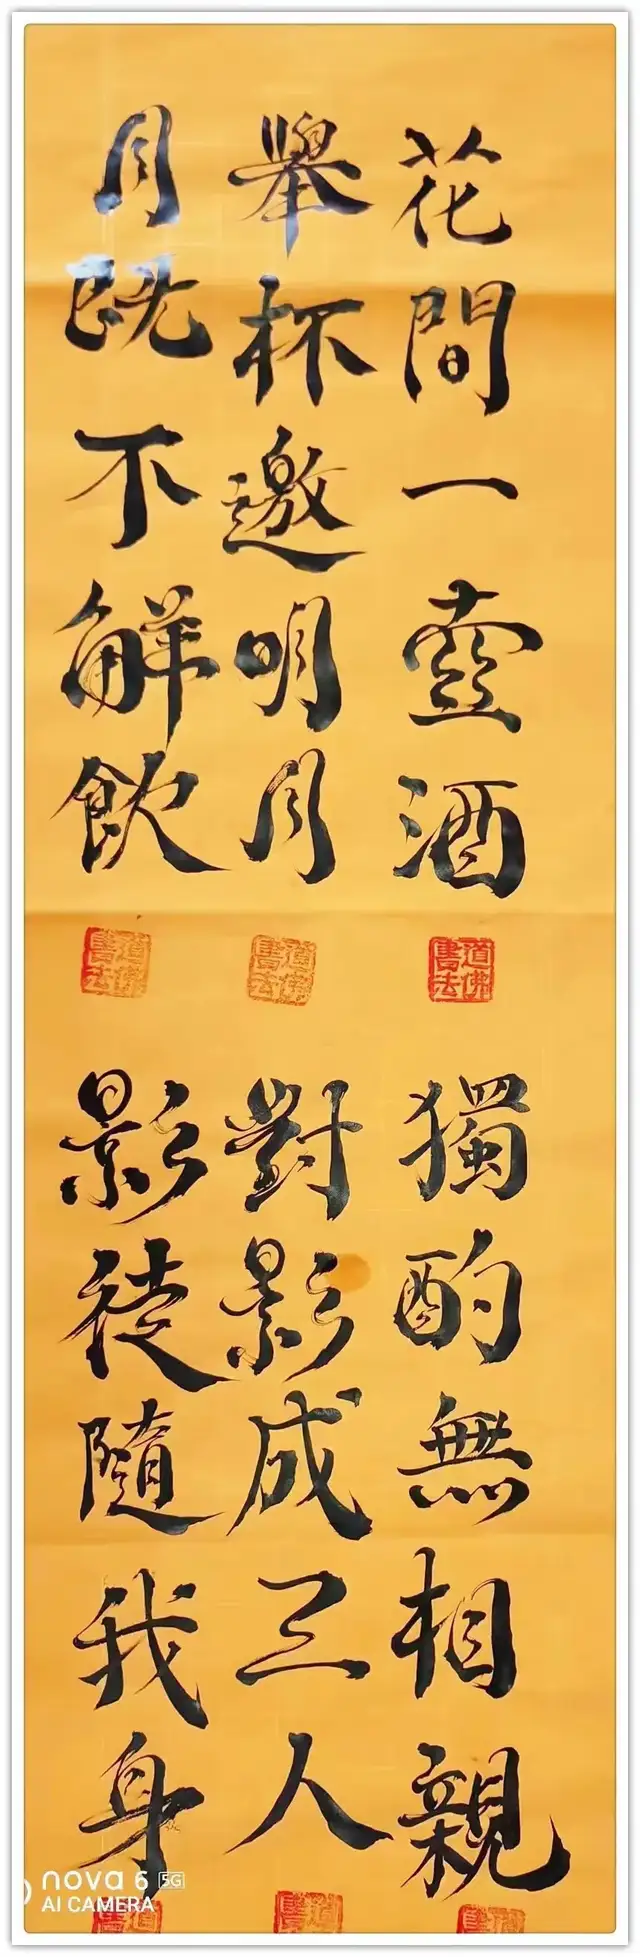 花間一壺酒
獨酌無相親
舉杯邀明月
對影成三人
月既不解飲
影徒隨我身
道佛書法
道佛書法
道佛書法
nova 6 5G
AI CAMERA